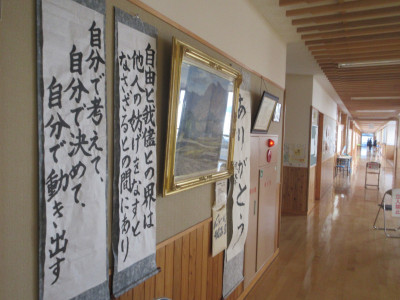 自分で考えて、
自分で決めて、
自分で動き出す
自由と我儘との界は
他人の妨げをなすと
なさざるとの間にあり
ありがとう